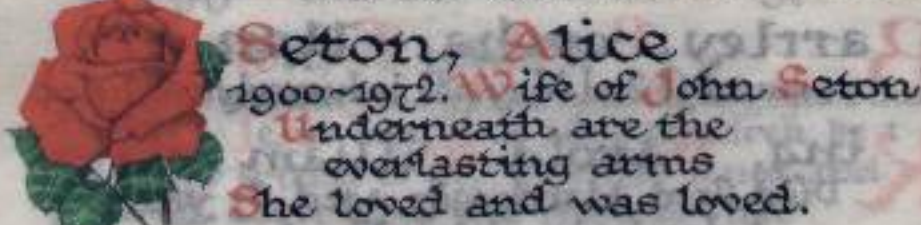 Seton, Alice
1900~1972. Wife of John Seton
Underneath are the
everlasting arms
She loved and was loved.